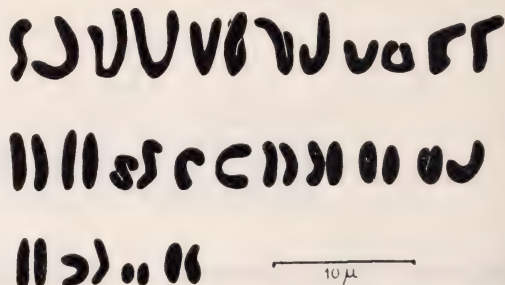 10 µ